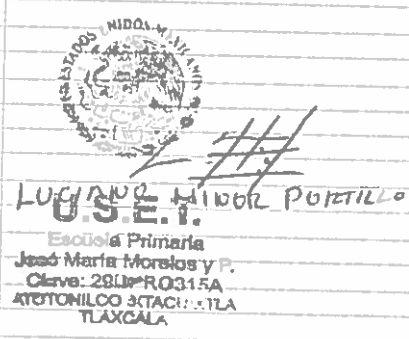 ESTADOS UNIDOS M
LUCIANO MINOR PORTILLO
U.S.E.T.
Escuela Primaria
José María Morelos y P.
Clave: 29DPR0315A
ATOTONILCO IXTACUIXTLA
TLAXCALA